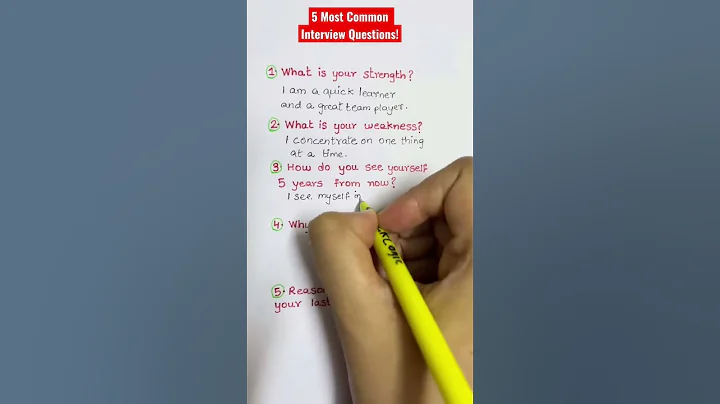 5 Most Common
Interview Questions!
1. What is your strength?
I am a quick learner
and a great team player.
2. What is your weakness?
I concentrate on one thing
at a time.
3 How do you see yourself
5 years from now?
I see myself in
4. Why
5. Reaso
your last